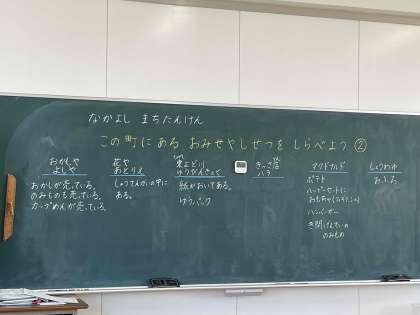 なかよし まちたんけん
この町にある おみせやしせつを しらべよう ②
おかしや
よしや
おかしが売っている。
のみものも売っている。
カップめんが売っている。
花や
あとりえ
しょうてんがいの中に
ある。
東よど川
ゆうびんきょく
紙がおいてある。
ゆうパック
きっさ店
ハラ
マクドナルド
ポテト
ハッピーセットに
おもちゃ
ハンバーガー
のみもの
しょうわゆ
おふろ